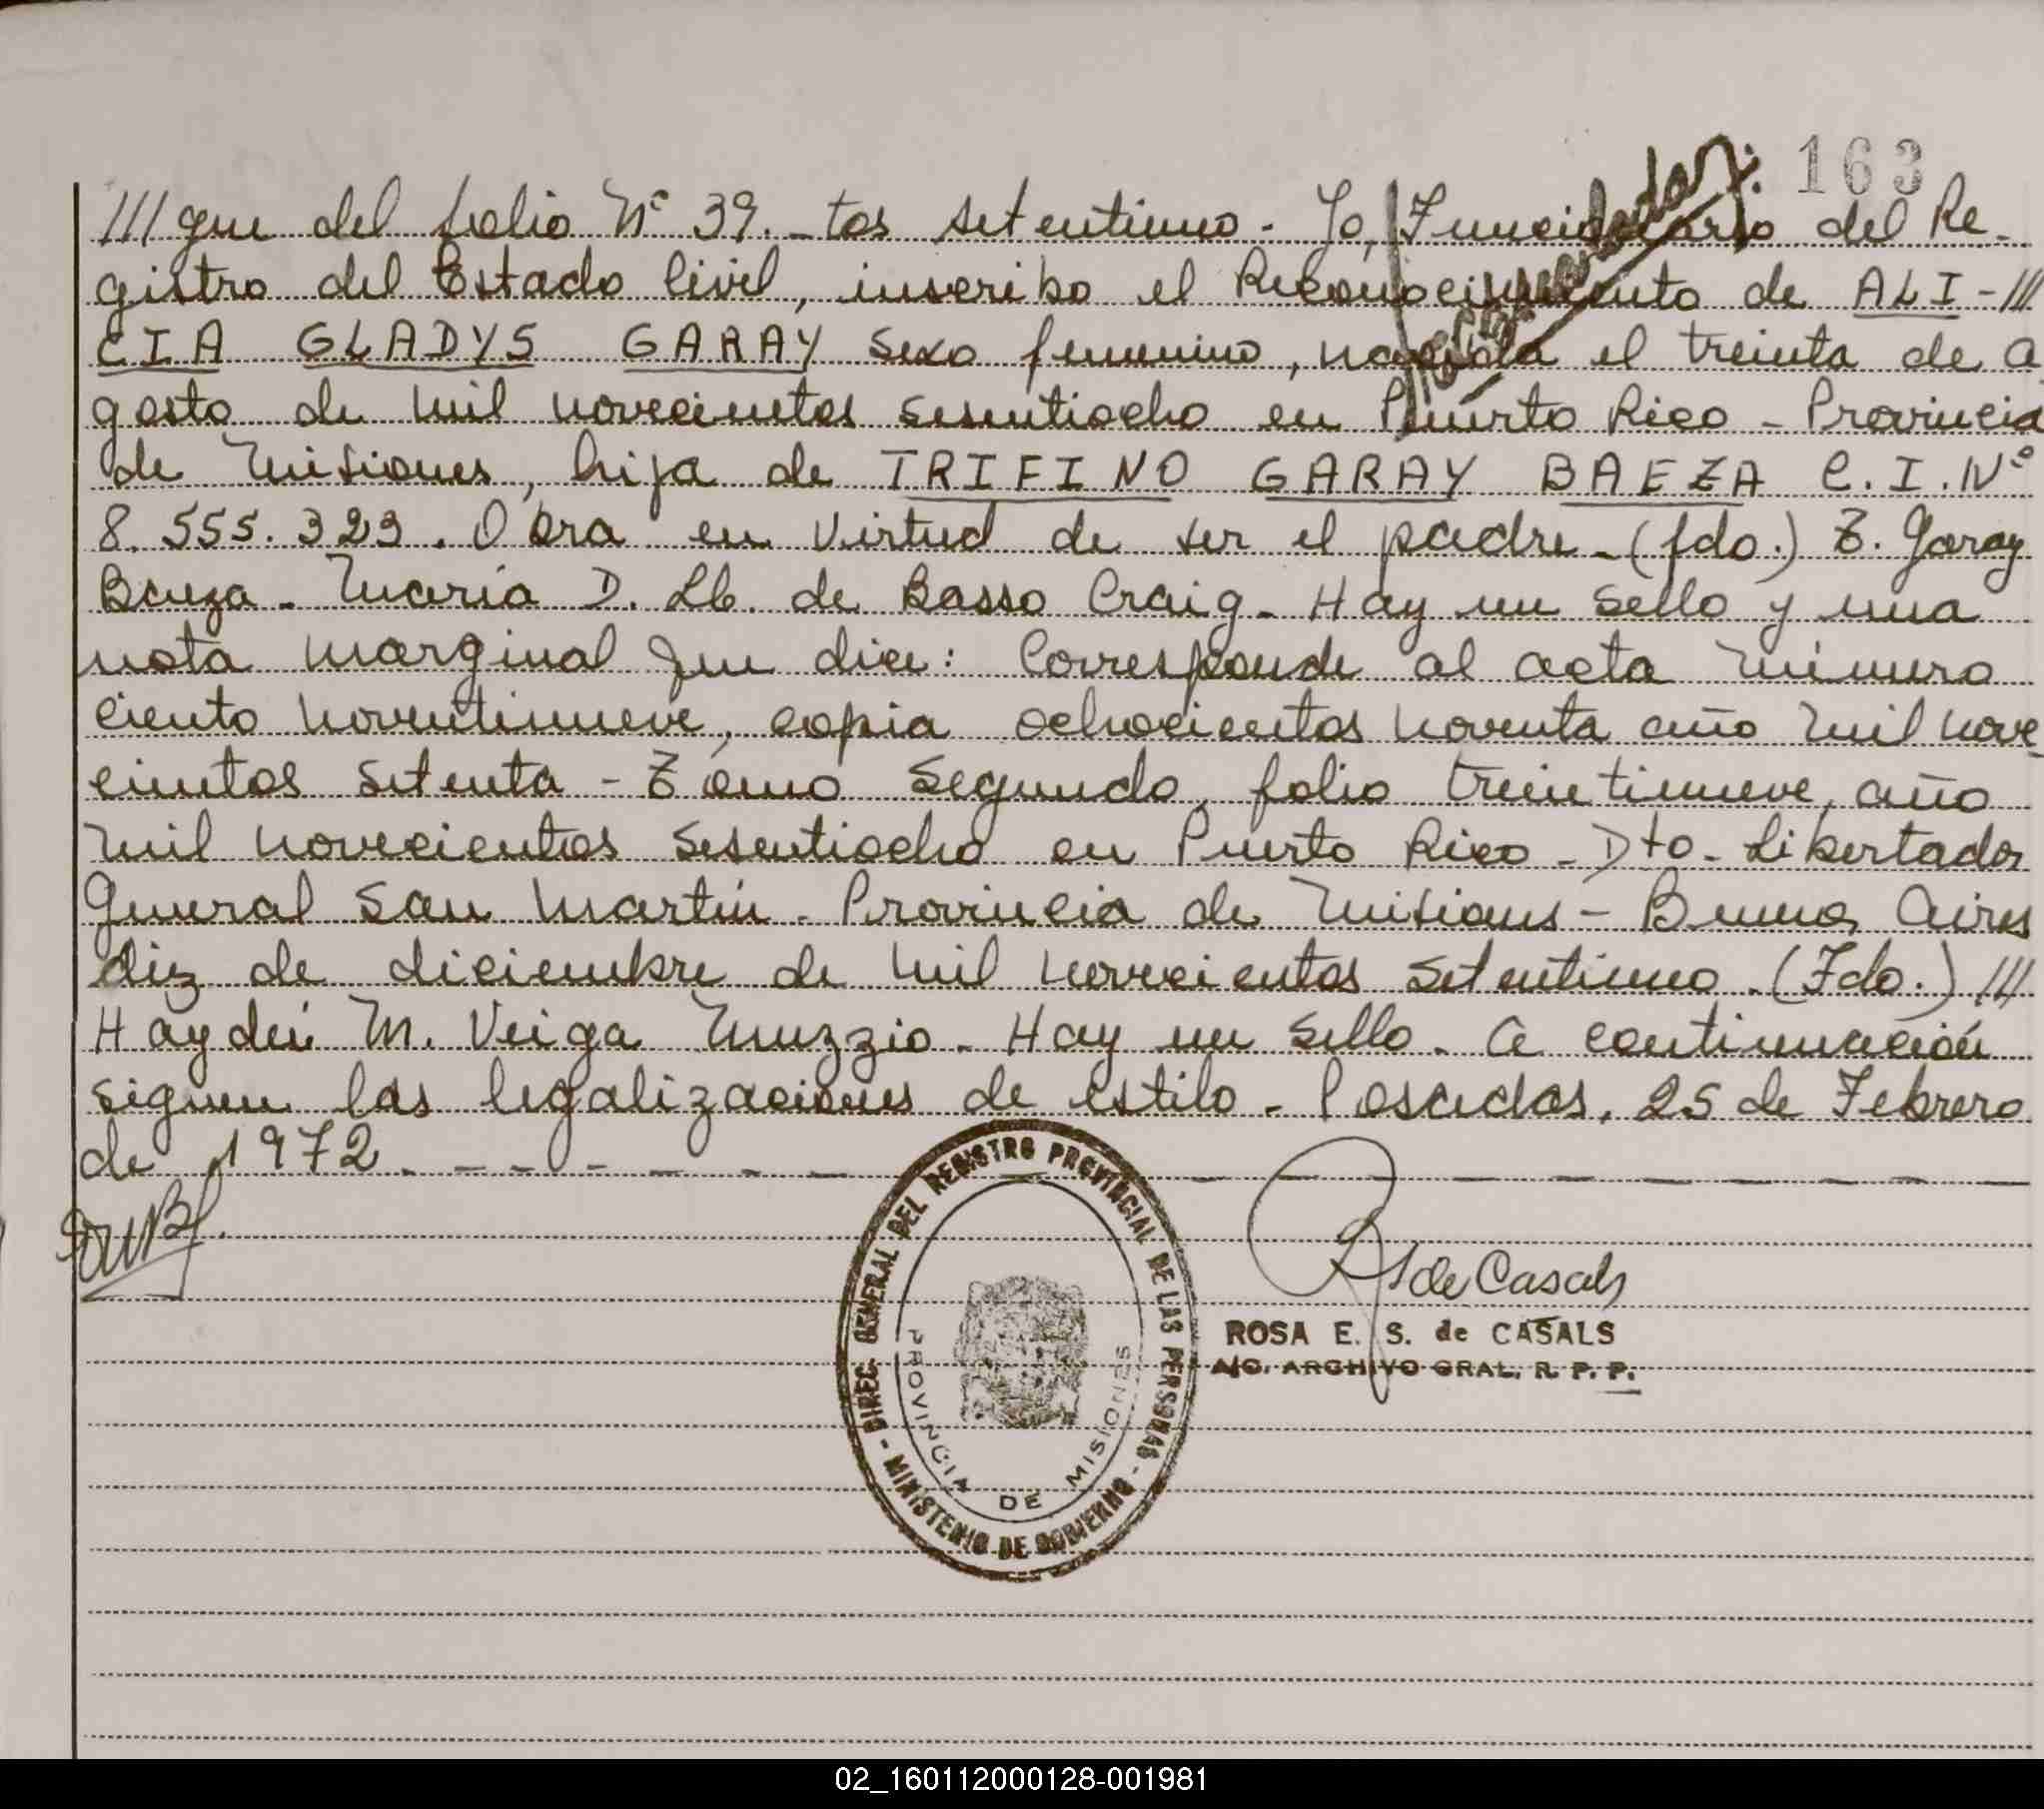 163
///gue del folio Nº 39. - tos setentiuno. Yo, Funcionario del Re-
gistro del Estado Civil, inscribo el Reconocimiento de ALI-///
CIA GLADYS GARAY sexo femenino, nacida el treinta de a
gosto de mil novecientos sesentiocho en Puerto Rico - Provincia
de Misiones, hija de TRIFINO GARAY BAEZA C.I. Nº
8.555.323. Obra en virtud de ser el padre - (fdo.) T. Garay
Baeza - María D. Ll. de Basso Craig - Hay un sello y una
nota marginal que dice: Corresponde al acta número
ciento noventinueve, copia ochocientos noventa año mil nove-
cientos setenta - Tomo Segundo, folio treintinueve, año
mil novecientos sesentiocho en Puerto Rico - Dto. Libertador
General San Martín - Provincia de Misiones - Buenos Aires
diez de diciembre de mil novecientos setentiuno. (Fdo.) ///
Haydeé M. Veiga Muzzio - Hay un sello. A continuación
siguen las legalizaciones de estilo - Posadas, 25 de Febrero
de 1972. - - - - - - -
DIREC. GENERAL DEL REGISTRO PROVINCIAL DE LAS PERSONAS - MINISTERIO DE GOBIERNO -
PROVINCIA DE MISIONES
de Casals
ROSA E. S. de CASALS
A/C. ARCHIVO GRAL. R. P. P.
02_160112000128-001981